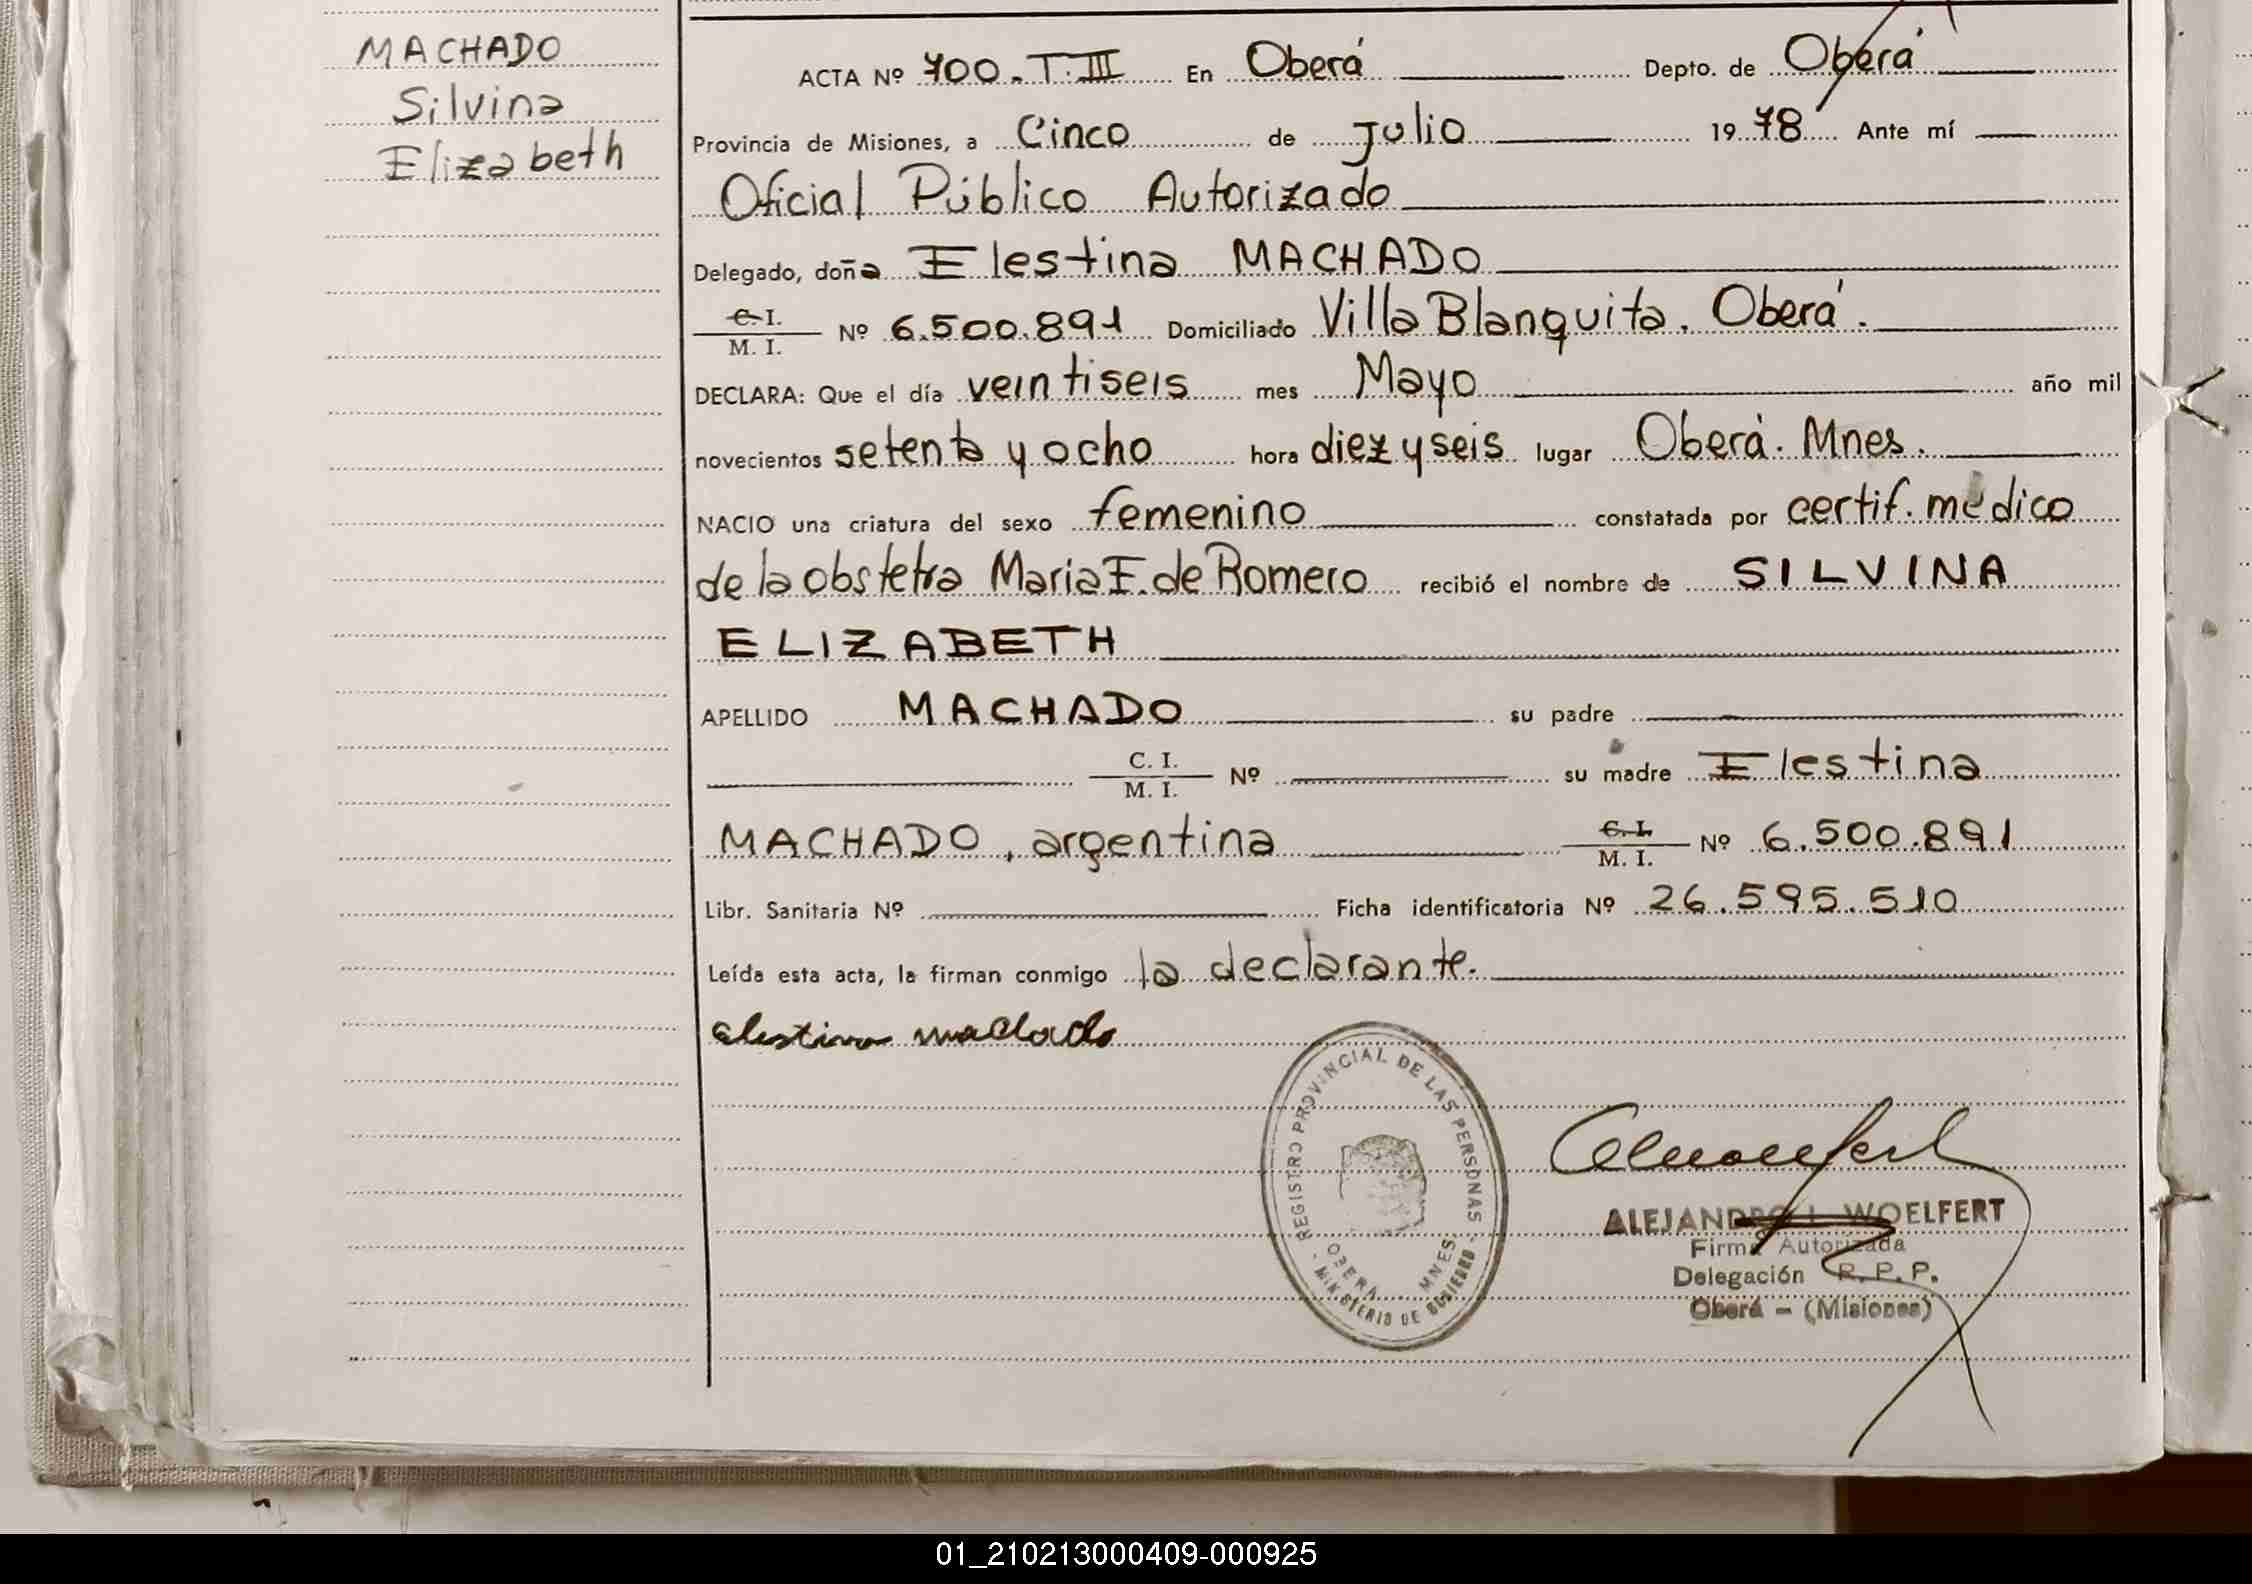 MACHADO
Silvina
Elizabeth
ACTA Nº 700. T. III En Oberá Depto. de Oberá
Provincia de Misiones, a Cinco de Julio 1978 Ante mí
Oficial Público Autorizado
Delegado, doña Elestina MACHADO
C. I.
M. I. Nº 6.500.891 Domiciliado Villa Blanquita. Oberá.
DECLARA: Que el día veintiseis mes Mayo año mil
novecientos setenta y ocho hora diez y seis lugar Oberá. Mnes.
NACIO una criatura del sexo femenino constatada por certif. médico
de la obstetra Maria E. de Romero recibió el nombre de SILVINA
ELIZABETH
APELLIDO MACHADO su padre
C. I.
M. I. Nº su madre Elestina
MACHADO, argentina C. I.
M. I. Nº 6.500.891
Libr. Sanitaria Nº Ficha identificatoria Nº 26.595.510
Leída esta acta, la firman conmigo la declarante.
elestina machado
REGISTRO PROVINCIAL DE LAS PERSONAS
OBERA MNES
- MINISTERIO DE GOBIERNO -
ALEJANDRO L. WOELFERT
Firma Autorizada
Delegación R. P. P.
Oberá - (Misiones)
01_210213000409-000925